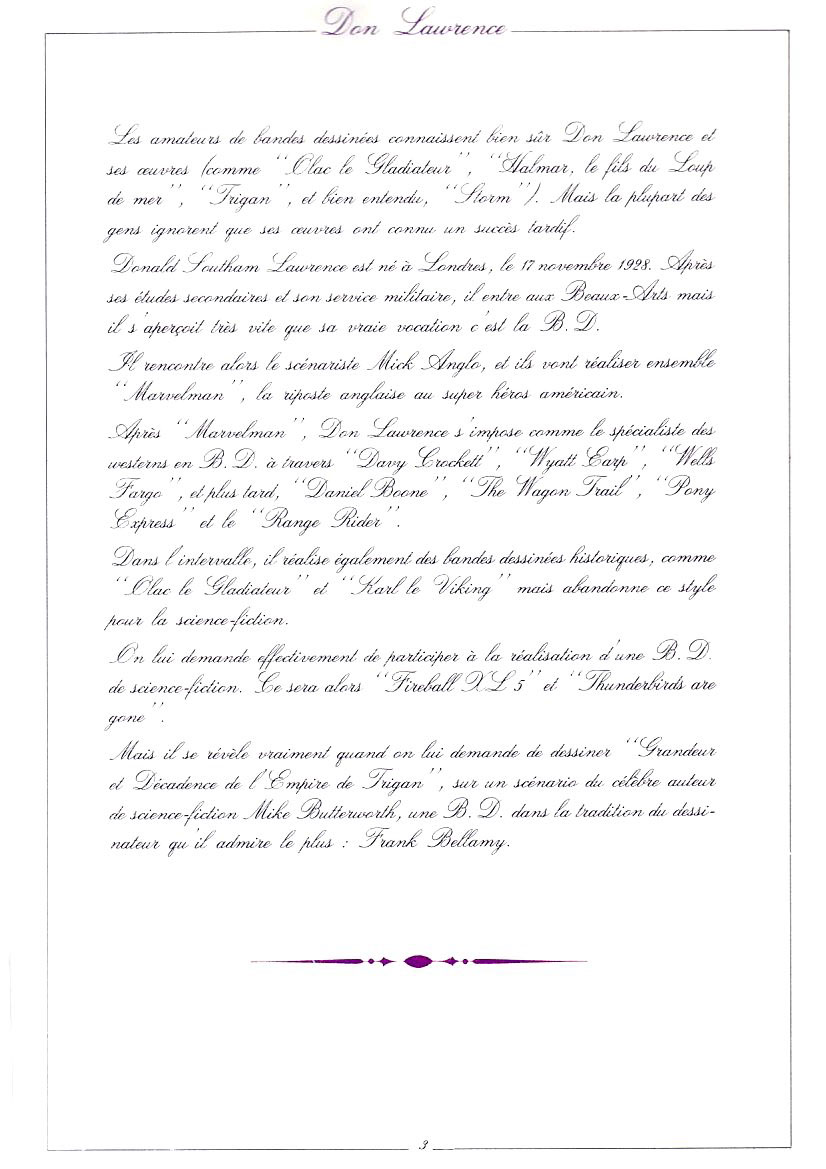 Don Lawrence
Les amateurs de bandes dessinées connaissent bien sûr Don Lawrence et
ses œuvres (comme "Olac le Gladiateur", "Halmar, le fils du Loup
de mer", "Trigan", et bien entendu, "Storm"). Mais la plupart des
gens ignorent que ses œuvres ont connu un succès tardif.
Donald Southam Lawrence est né à Londres, le 17 novembre 1928. Après
ses études secondaires et son service militaire, il entre aux Beaux-Arts mais
il s'aperçoit très vite que sa vraie vocation c'est la B.D.
Il rencontre alors le scénariste Mick Anglo, et ils vont réaliser ensemble
"Marvelman", la riposte anglaise au super héros américain.
Après "Marvelman", Don Lawrence s'impose comme le spécialiste des
westerns en B.D. à travers "Davy Crockett", "Wyatt Earp", "Wells
Fargo", et plus tard, "Daniel Boone", "The Wagon Trail", "Pony
Express" et le "Range Rider".
Dans l'intervalle, il réalise également des bandes dessinées historiques, comme
"Olac le Gladiateur" et "Karl le Viking" mais abandonne ce style
pour la science-fiction.
On lui demande effectivement de participer à la réalisation d'une B.D.
de science-fiction. Ce sera alors "Fireball XL 5" et "Thunderbirds are
gone".
Mais il se révèle vraiment quand on lui demande de dessiner "Grandeur
et Décadence de l'Empire de Trigan", sur un scénario du célèbre auteur
de science-fiction Mike Butterworth, une B.D. dans la tradition du dessi-
nateur qu'il admire le plus : Frank Bellamy.
3